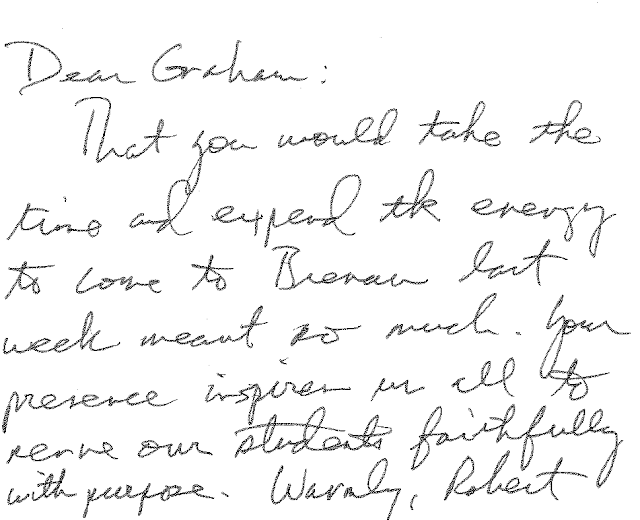 Dear Graham:
That you would take the
time and expend the energy
to come to Brenau last
week meant so much. Your
presence inspires us all to
serve our students faithfully
with purpose. Warmly, Robert